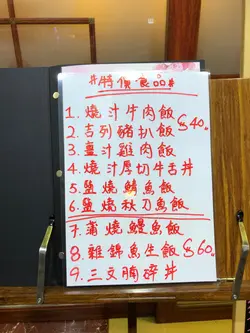 #特價食品#
1. 燒汁牛肉飯
2. 吉列豬扒飯 $40.
3. 薑汁雞肉飯
4. 燒汁厚切牛舌丼
5. 鹽燒鯖魚飯
6. 鹽燒秋刀魚飯
7. 蒲燒鰻魚飯
8. 雜錦魚生飯 $60.
9. 三文腩碎丼